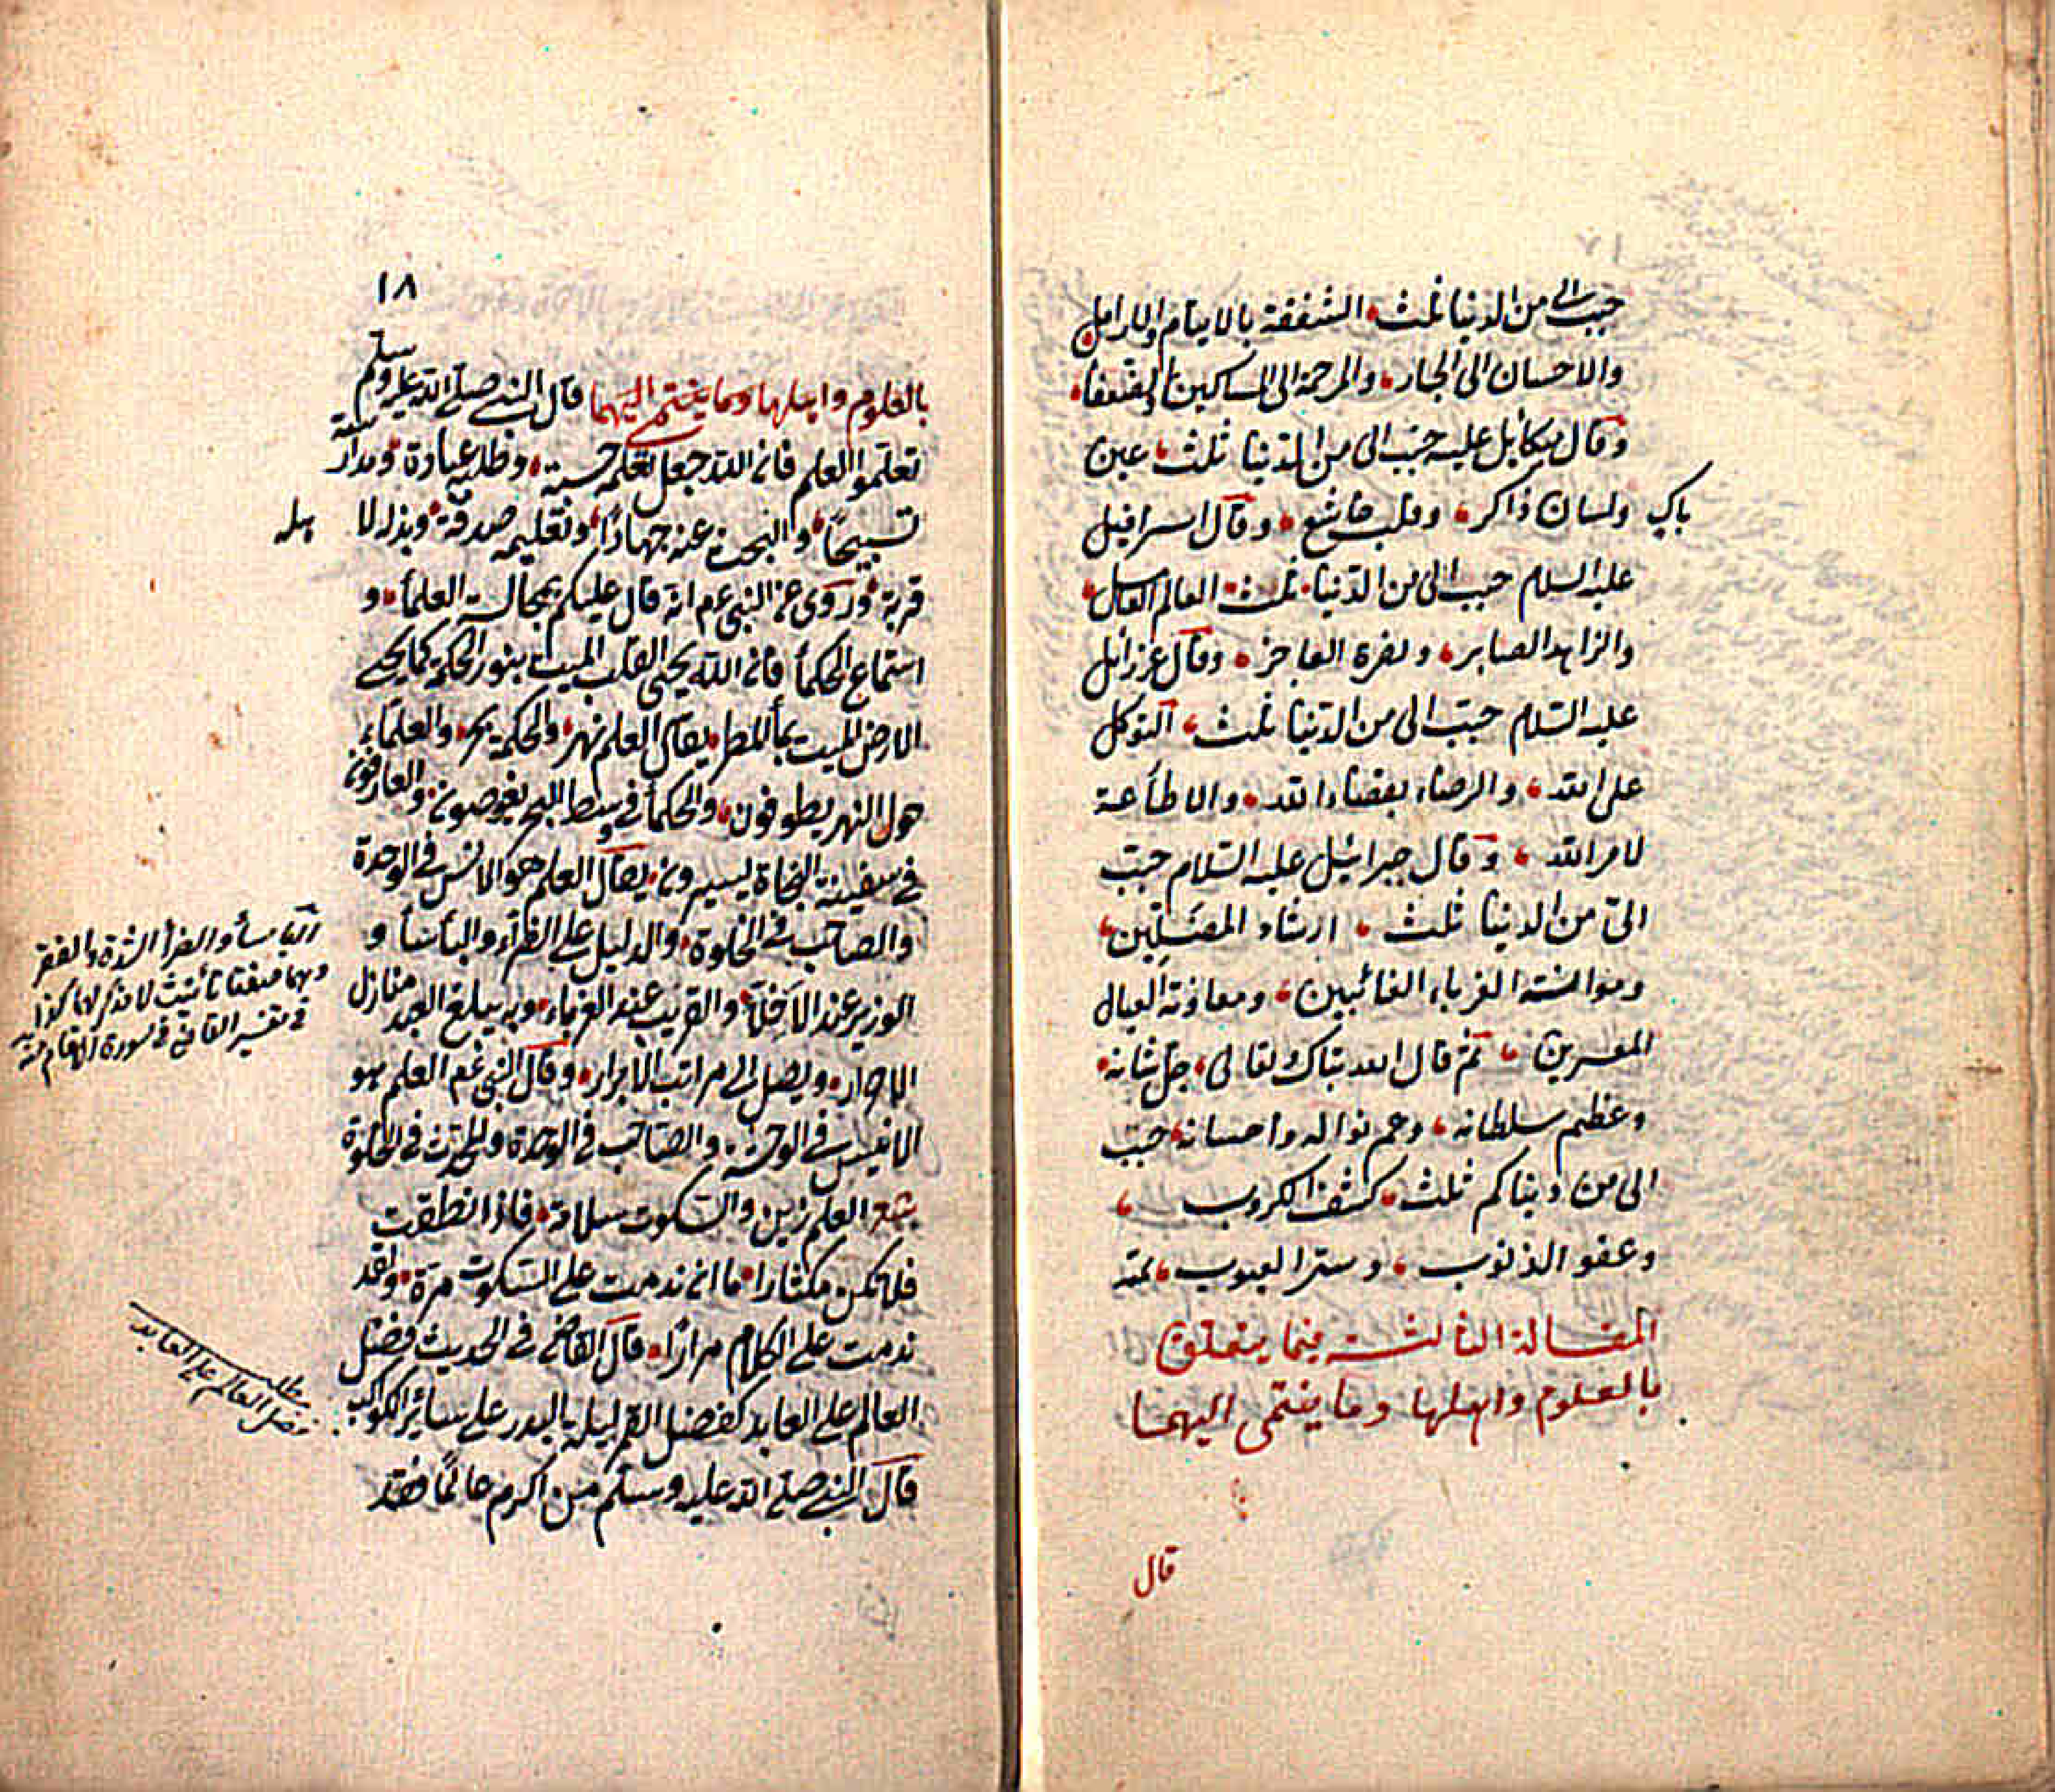 حبب الى من الدنيا ثلث الشفقة بالايتام والارامل
والاحسان الى الجار والمرحمة الى المساكين والضعفا
وقال ميكائيل عليه حبب الى من الدنيا ثلث عين
باك ولسان ذاكر وقلب خاشع وقال اسرافيل
عليه السلام حبب الى من الدنيا ثلث العالم العامل
والزاهد الصابر و الفاجر وقال عزرائل
عليه السلام حبب الى من الدنيا ثلث التوكل
على الله والرضاء بقضاء الله والاطاعة
لامر الله وقال جبرائيل عليه السلام حبب
الىّ من الدنيا ثلث ارشاد المضلين
وموانسة الغرباء الغائبين ومعاونة العيال
المعسرين ثم قال الله تبارك تعالى جل شانه
وعظم سلطانه وعم نواله واحسانه حبب
الى من دنياكم ثلث كشف الكروب
وعفو الذنوب وستر العيوب تمت
المقالة الثالثة فيما يتعلق
بالعلوم واهلها وما ينتمى اليهما
قال
١٨
بالعلوم واهلها وما ينتمى اليهما قال النبى صلى الله عليه وسلم
تعلموا العلم فان الله جعل تعلمه حسنة وطلبه عبادة ومدارسته
تسبيحا والبحث عنه جهادا وتعليمه صدقة وبذله لاهله
قربة وروى عن النبى عم انه قال عليكم بمجالسة العلمأ و
استماع الحكمأ فان الله يحيى القلب الميت بنور الحكمة كما يحيى
الارض الميت بمأ المطر يقال العلم نهر والحكمة بحر والعلماء
حول النهر يطوفون والحكمأ فى وسط البحر يغوصون والعارفون
فى سفينة النجاة يسيرون يقال العلم هو الانس فى الوحدة
والصاحب فى الخلوة والدليل على الضرآء والبأسأ و
الوزير عند الاخلآء والقريب عند الغرباء وبه يبلغ العبد منازل
الاحرار ويصل الى مراتب الابرار وقال النبى عم العلم هو
الانيس فى الوحشة والصاحب فى الوحدة والمحدث فى الخلوة
شعر العلم زين والسكوت سلامة فاذا نطقت
فلا تكن مكثارا ما ان ندمت على السكوت مرة ولقد
ندمت على الكلام مرارا قال القاضى فى الحديث فضل
العالم على العابد كفضل القمر ليلة البدر على سائر الكواكب
قال النبى صلى الله عليه وسلم من اكرم عالما فقد
البأسأ والضرأ الشدة والفقر
وهما صيغتا تأنيث لا مذكر لهما كذا
فى تفسير القاضى فى سورة الانعام منه
مطلب
فضل العالم على العابد